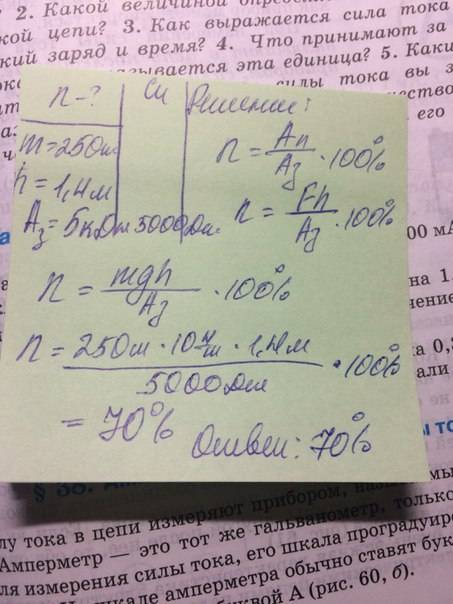 2. Какой величиной
кой цепи? 3. Как выражается сила тока
кий заряд и время? 4. Что принимают за
зывается эта единица? 5. Каки
силы тока вы з
его
n-? Си Решение:
m=250 кг
h=1,4м
Aз=5кДж 5000Дж
n = Aп/Aз · 100%
n = Fh/Aз · 100%
n = mgh/Aз · 100%
n = 250кг · 10 Н/кг · 1,4м / 5000Дж · 100%
= 70%
Ответ: 70%
00 мА
на 1.
чение
ка 0,
али
ы то
§ 38. Ам
лу тока в цепи измеряют прибором,
Амперметр — это тот же гальванометр, только
ля измерения силы тока, его шкала проградуиро
шкале амперметра обычно ставят бук
буквой А (рис. 60, б).